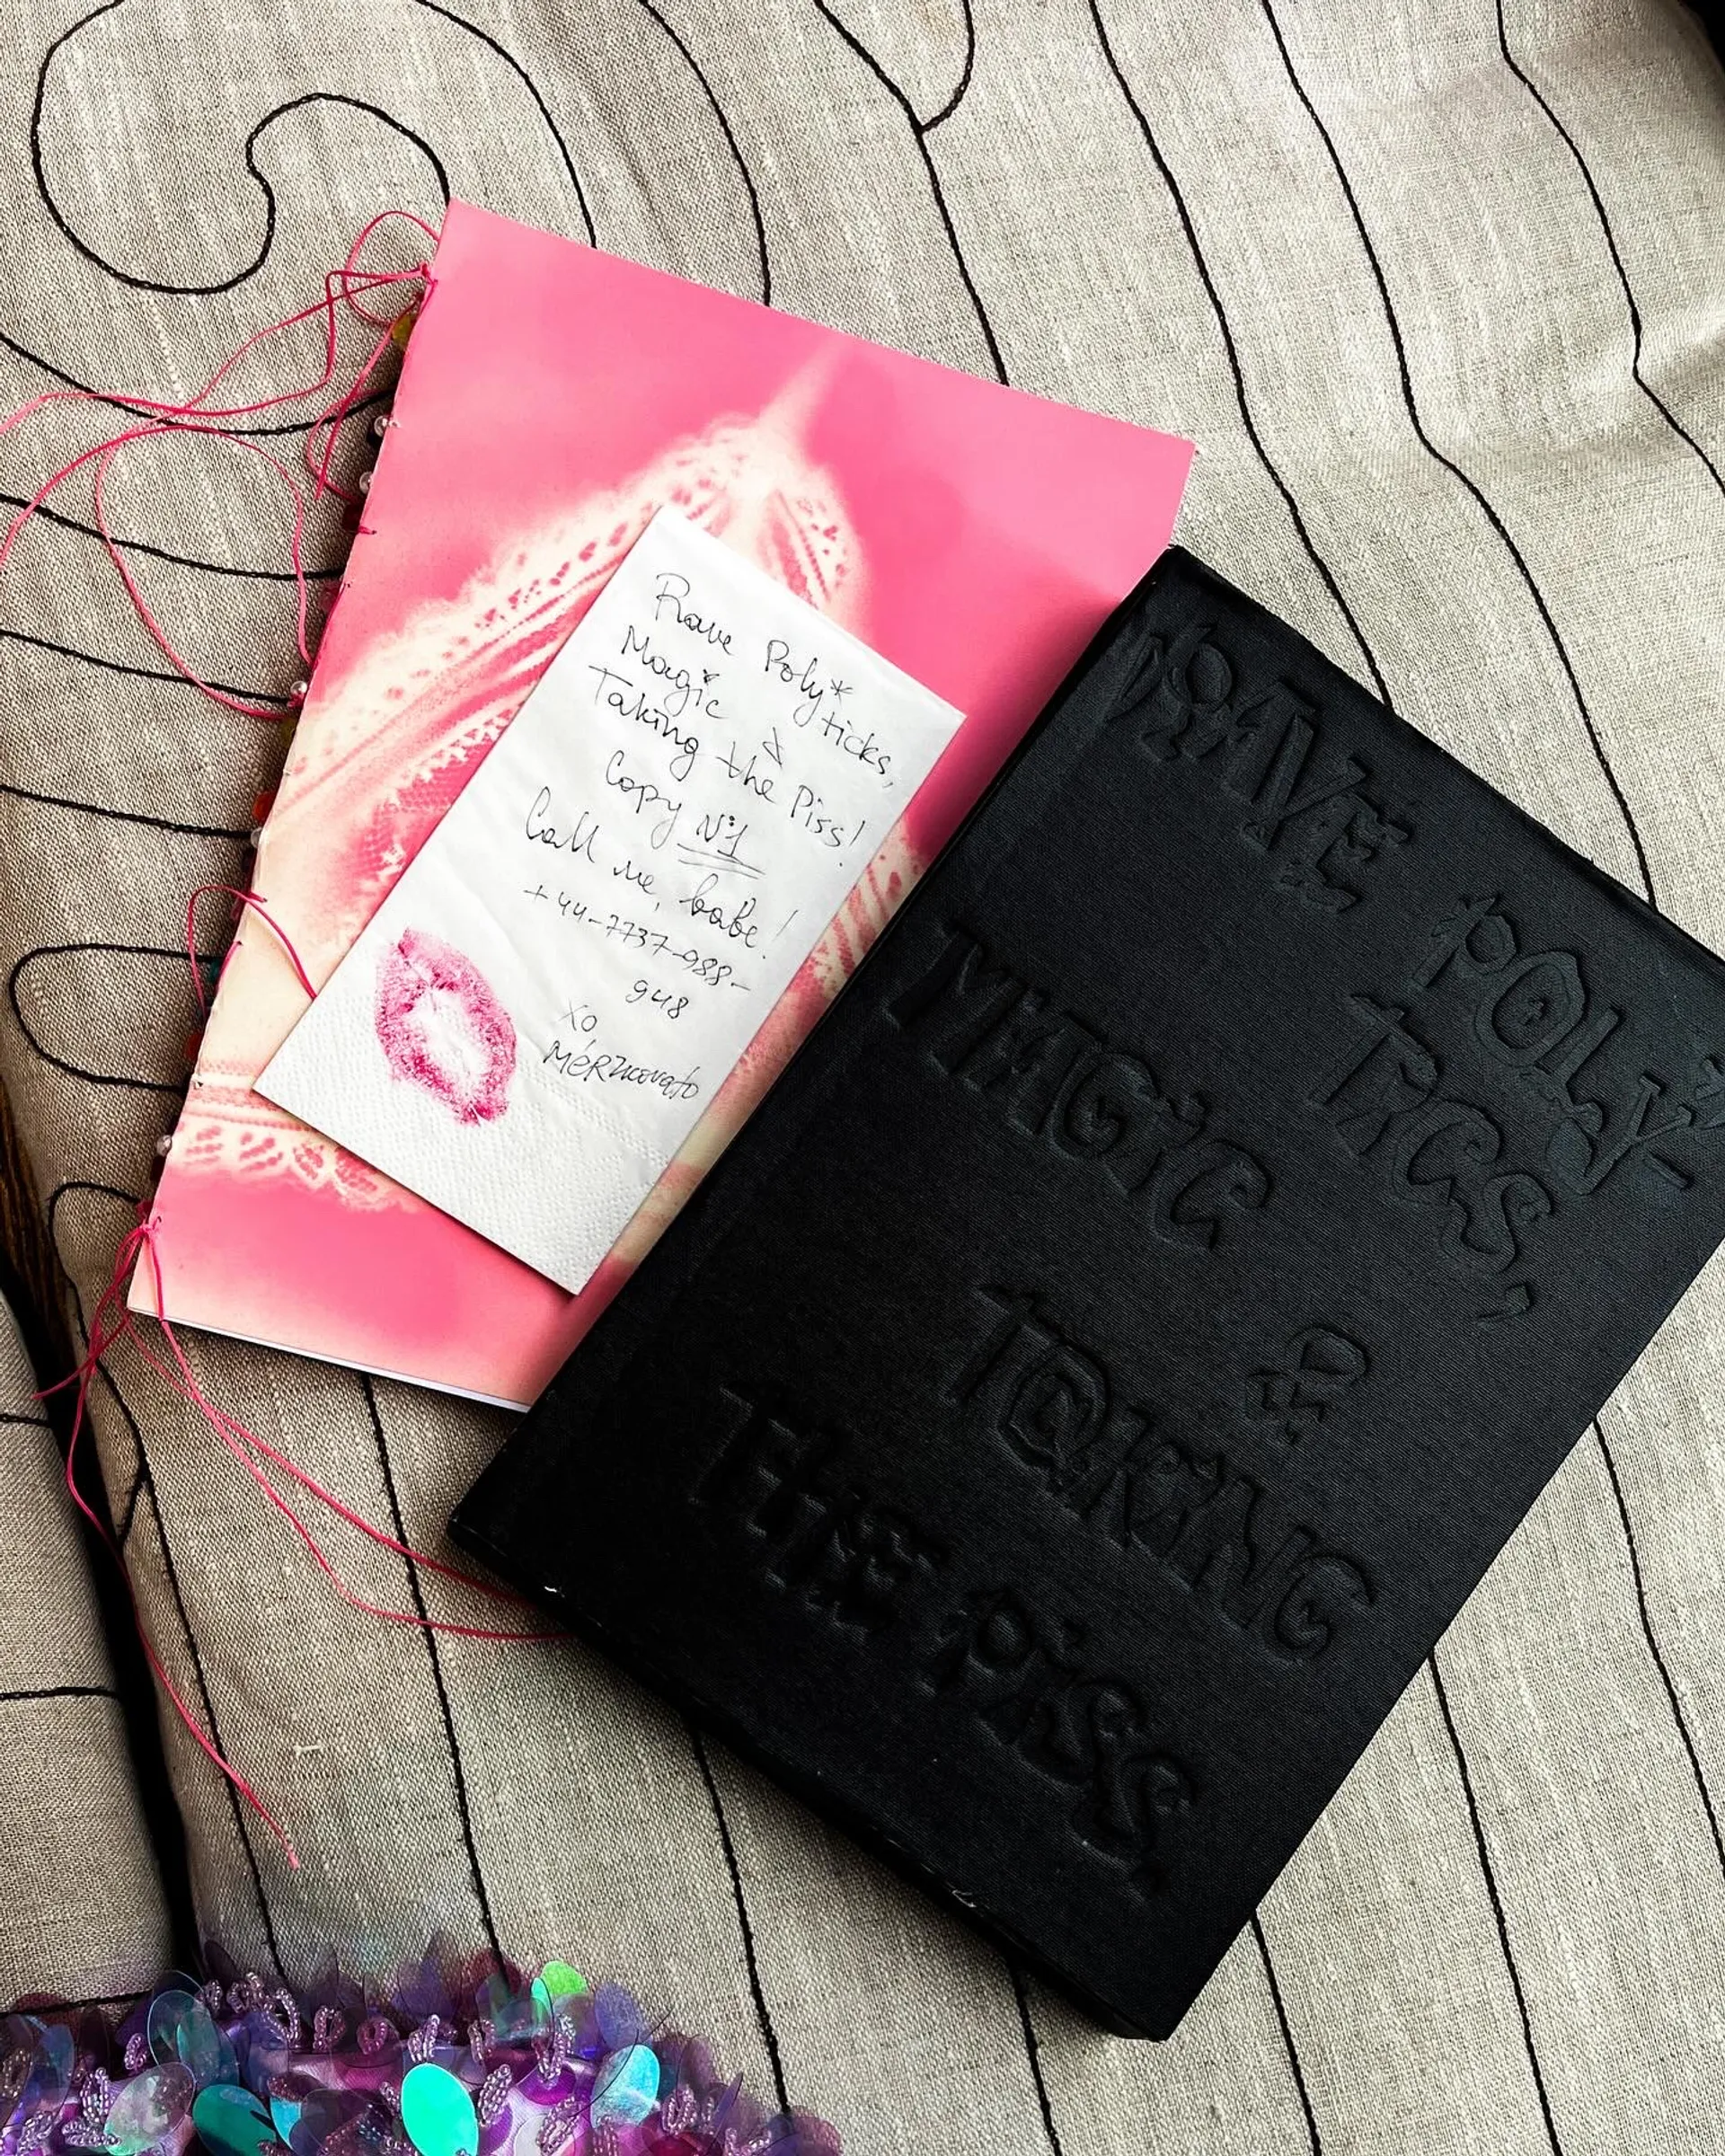 Rave Poly*ticks,
Magic &
Taking the Piss!
Copy N°1
Call me, babe!
+44-7737-988-
948
xo
MÉRZkovato
RAVE POLY*-
TICS,
MAGIC
&
TAKING
THE PISS,